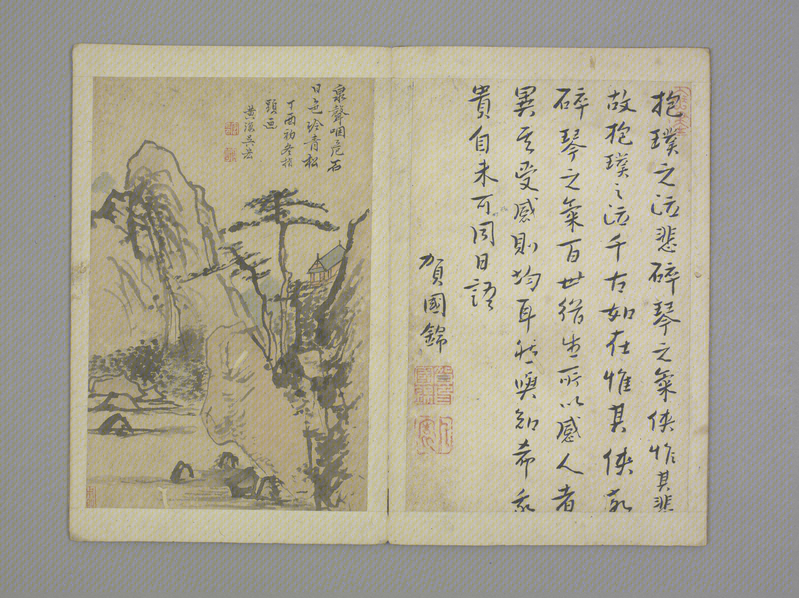 抱璞之泣悲碎琴之氣俠惟其悲
故抱璞之泣千古如在惟其俠故
碎琴之氣百世猶生所以感人者
異其受感則均耳然與知希我
貴自未可同日語
賀國錦
泉聲咽危石
日色冷青松
丁酉初冬指
頭画
黄溪吴宏